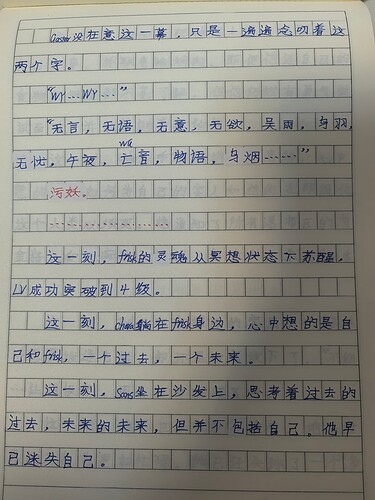 Gaster没在意这一幕，只是一遍遍念叨着这
两个字。
“WY……WY……”
“无言，无语，无意，无欲，吴雨，乌羽，
Wu
无忧，午夜，亡音，物语，乌烟……”
污妖。
…………………
这一刻，frisk的灵魂从冥想状态下苏醒，
LV成功突破到4级。
这一刻，chara躺在frisk身边，心中想的是自
己和frisk，一个过去，一个未来。
这一刻，Sans坐在沙发上，思考着过去的
过去，未来的未来，但并不包括自己。他早
已迷失自己。